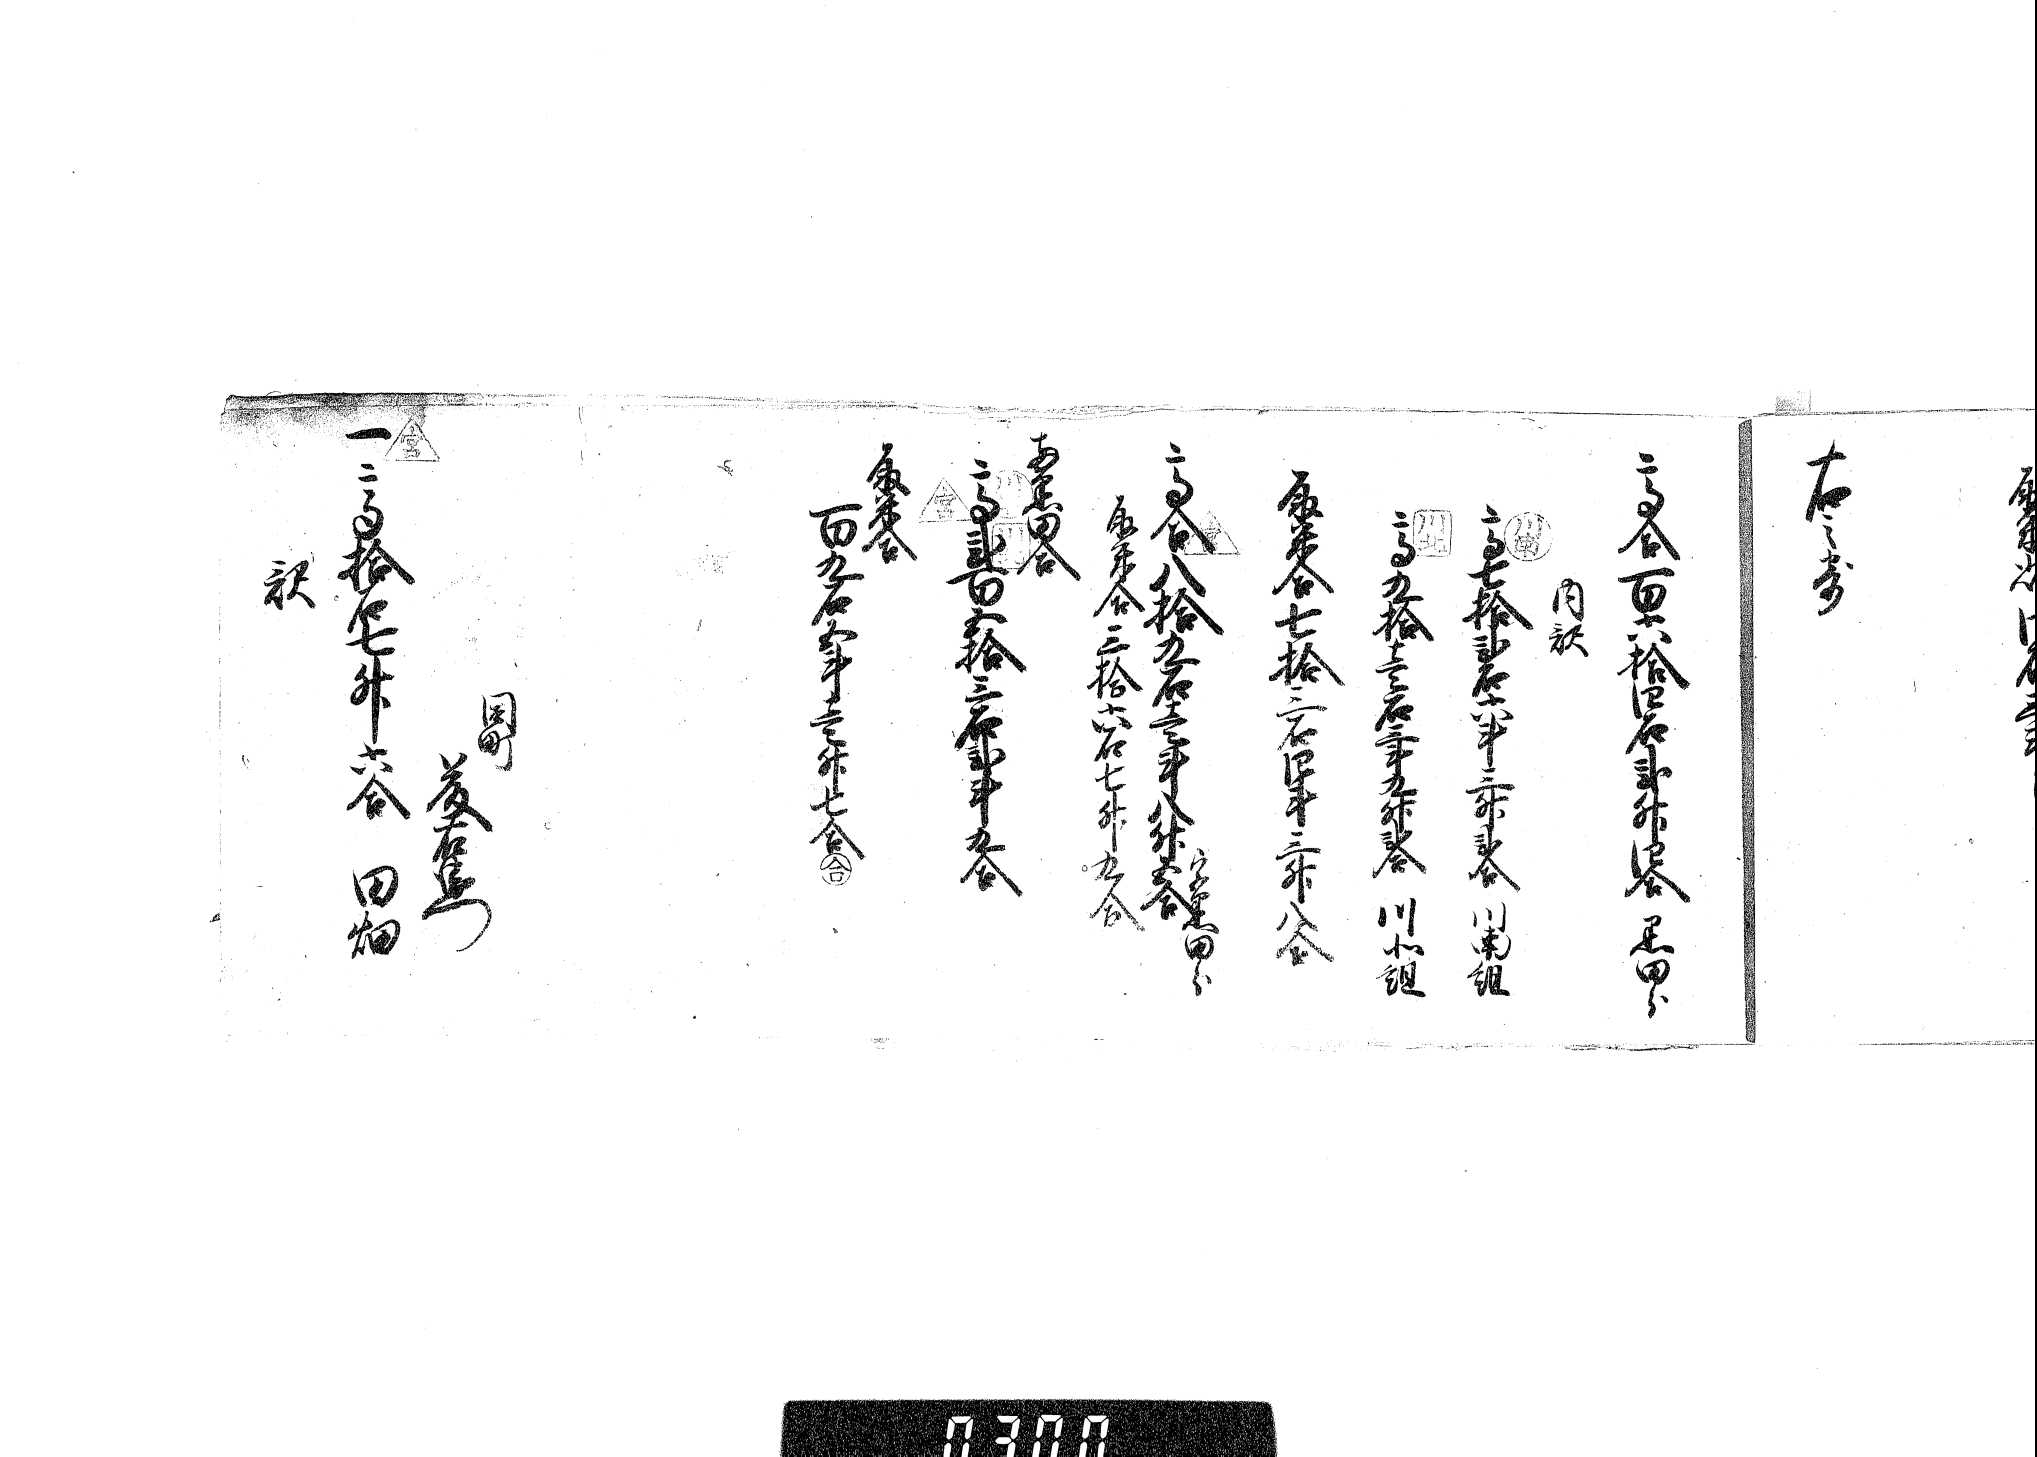 右之寄
高合百六拾四石弐升四合 黒田分
内訳
川南
高七拾弐石六斗三升弐合 川南組
川北
高九拾壱石三斗九升弐合 川北組
取米合七拾三石四斗三升八合
宮
高合八拾九石壱斗八升五合 宮黒田分
取米合三拾六石七升九合
両黒田合
高弐百五拾三石弐斗九合
宮
取米合
百九石五斗壱升七合
合
同町
宮
一 高拾石七升六合 田畑
訳
0300